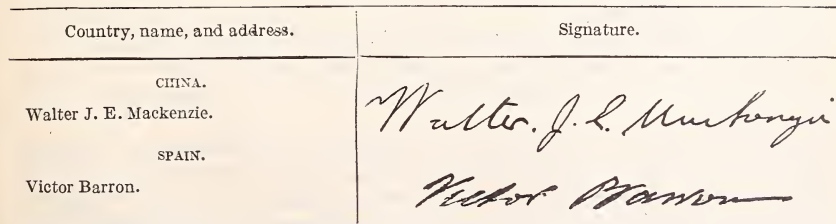 Country, name, and address.
Signature.
CHINA.
Walter J. E. Mackenzie.
Walter. J. E. Mackenzie
SPAIN.
Victor Barron.
Victor Barron